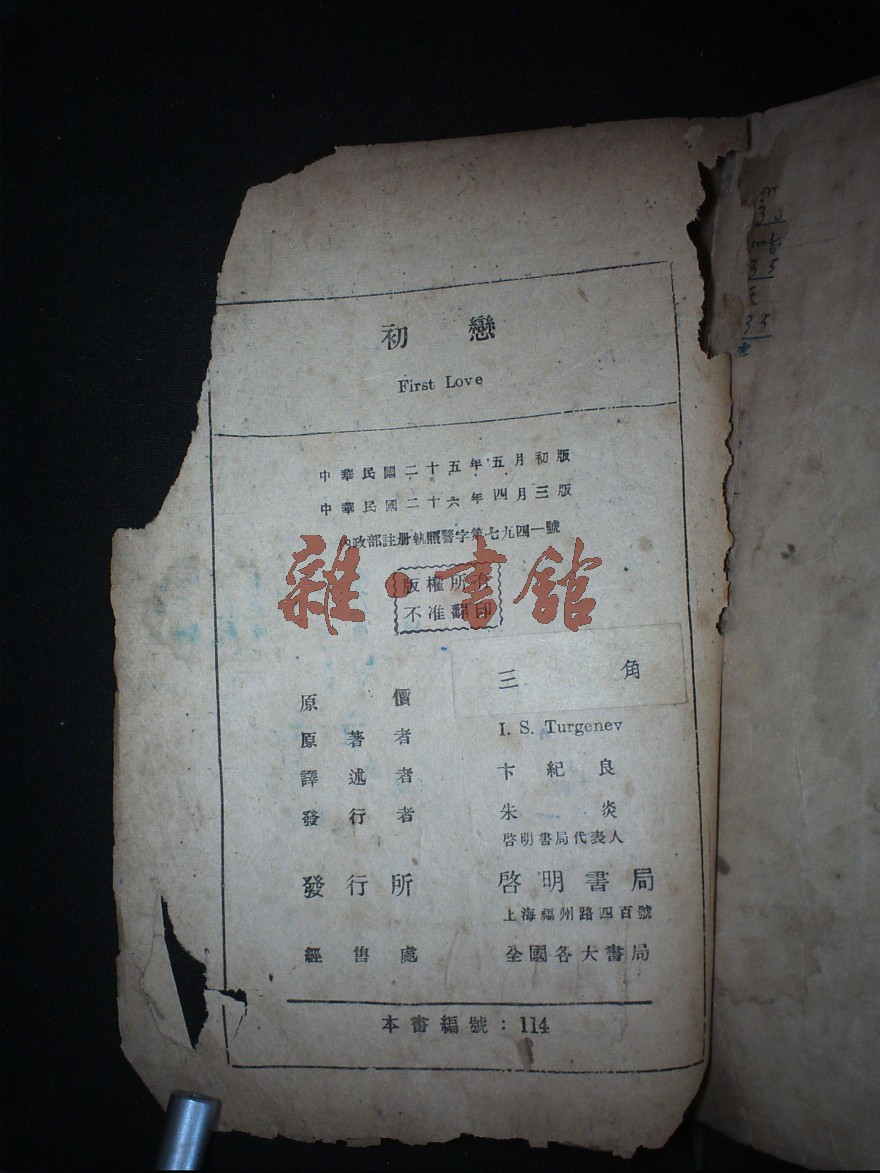 初戀
First Love
中華民國二十五年五月初版
中華民國二十六年四月三版
內政部註册執照警字第七九四一號
版權所有
不准翻印
雜·書館
原價 三角
原著者 I. S. Turgenev
譯述者 卞紀良
發行者 朱炎
啓明書局代表人
發行所 啓明書局
上海福州路四百號
經售處 全國各大書局
本書編號：114
35
35